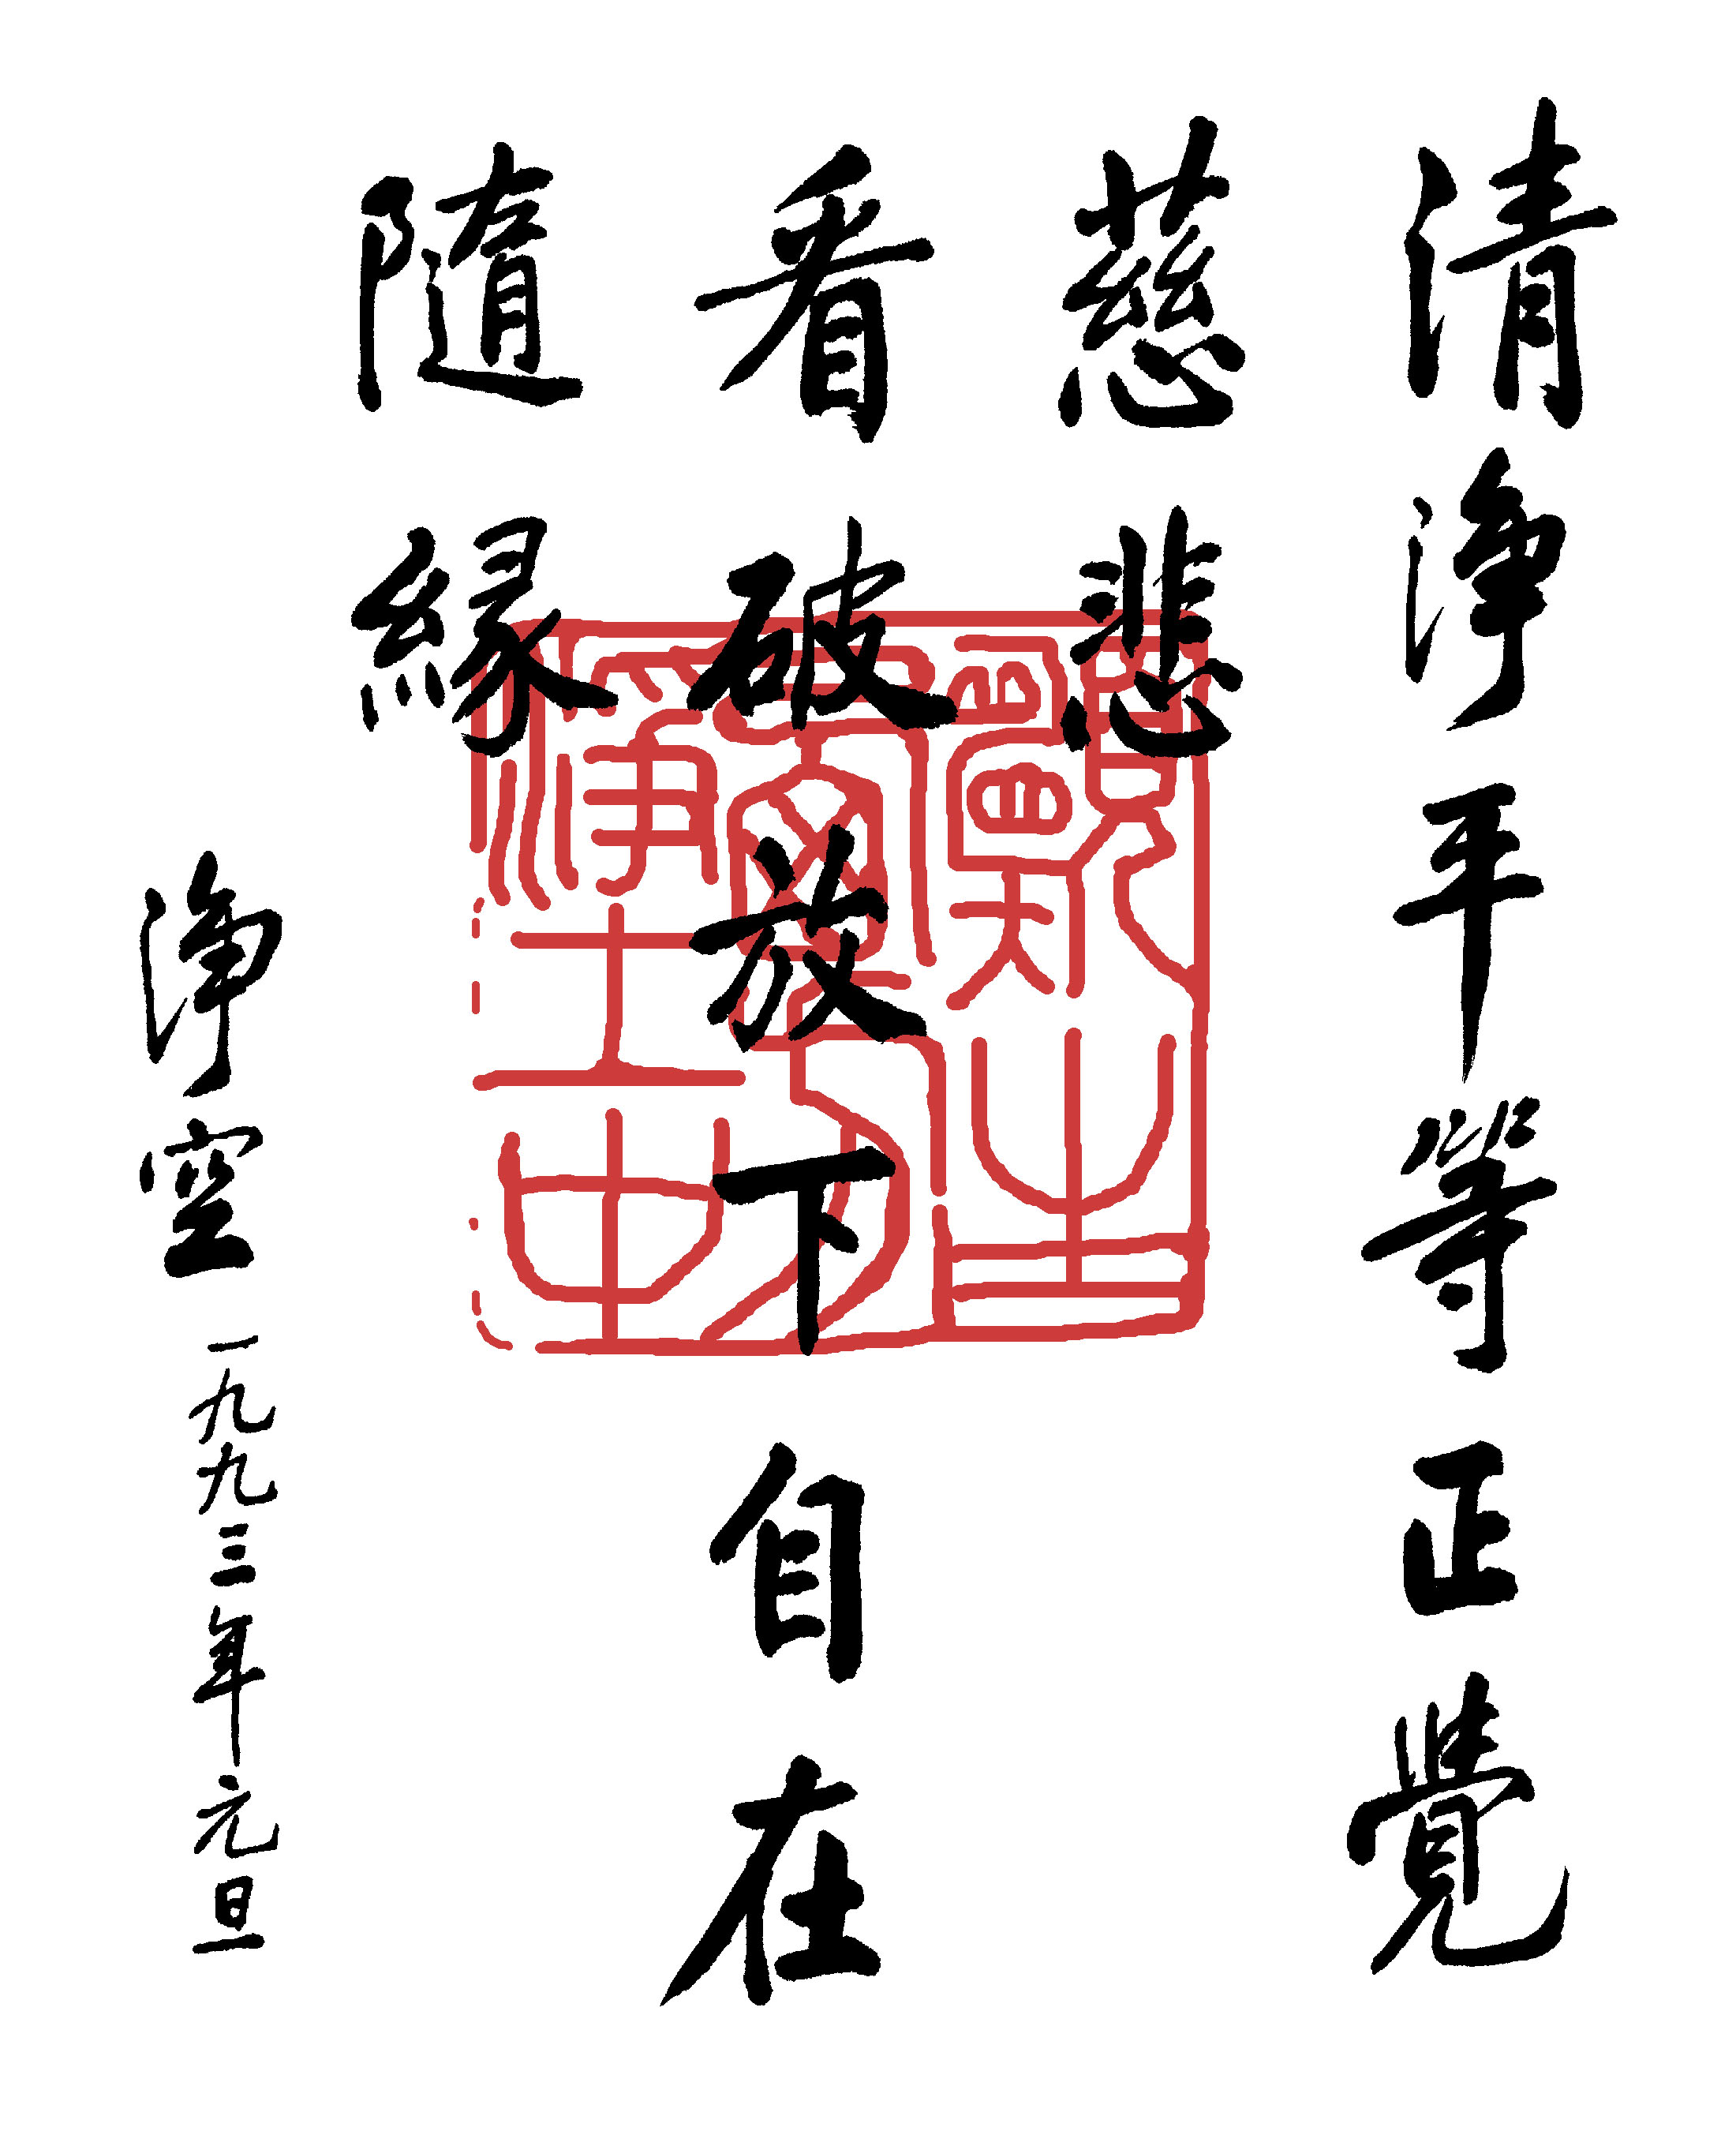 清淨平等正覺
慈悲
看破放下自在
隨緣
淨空
一九九三年元旦
願生西方淨土中